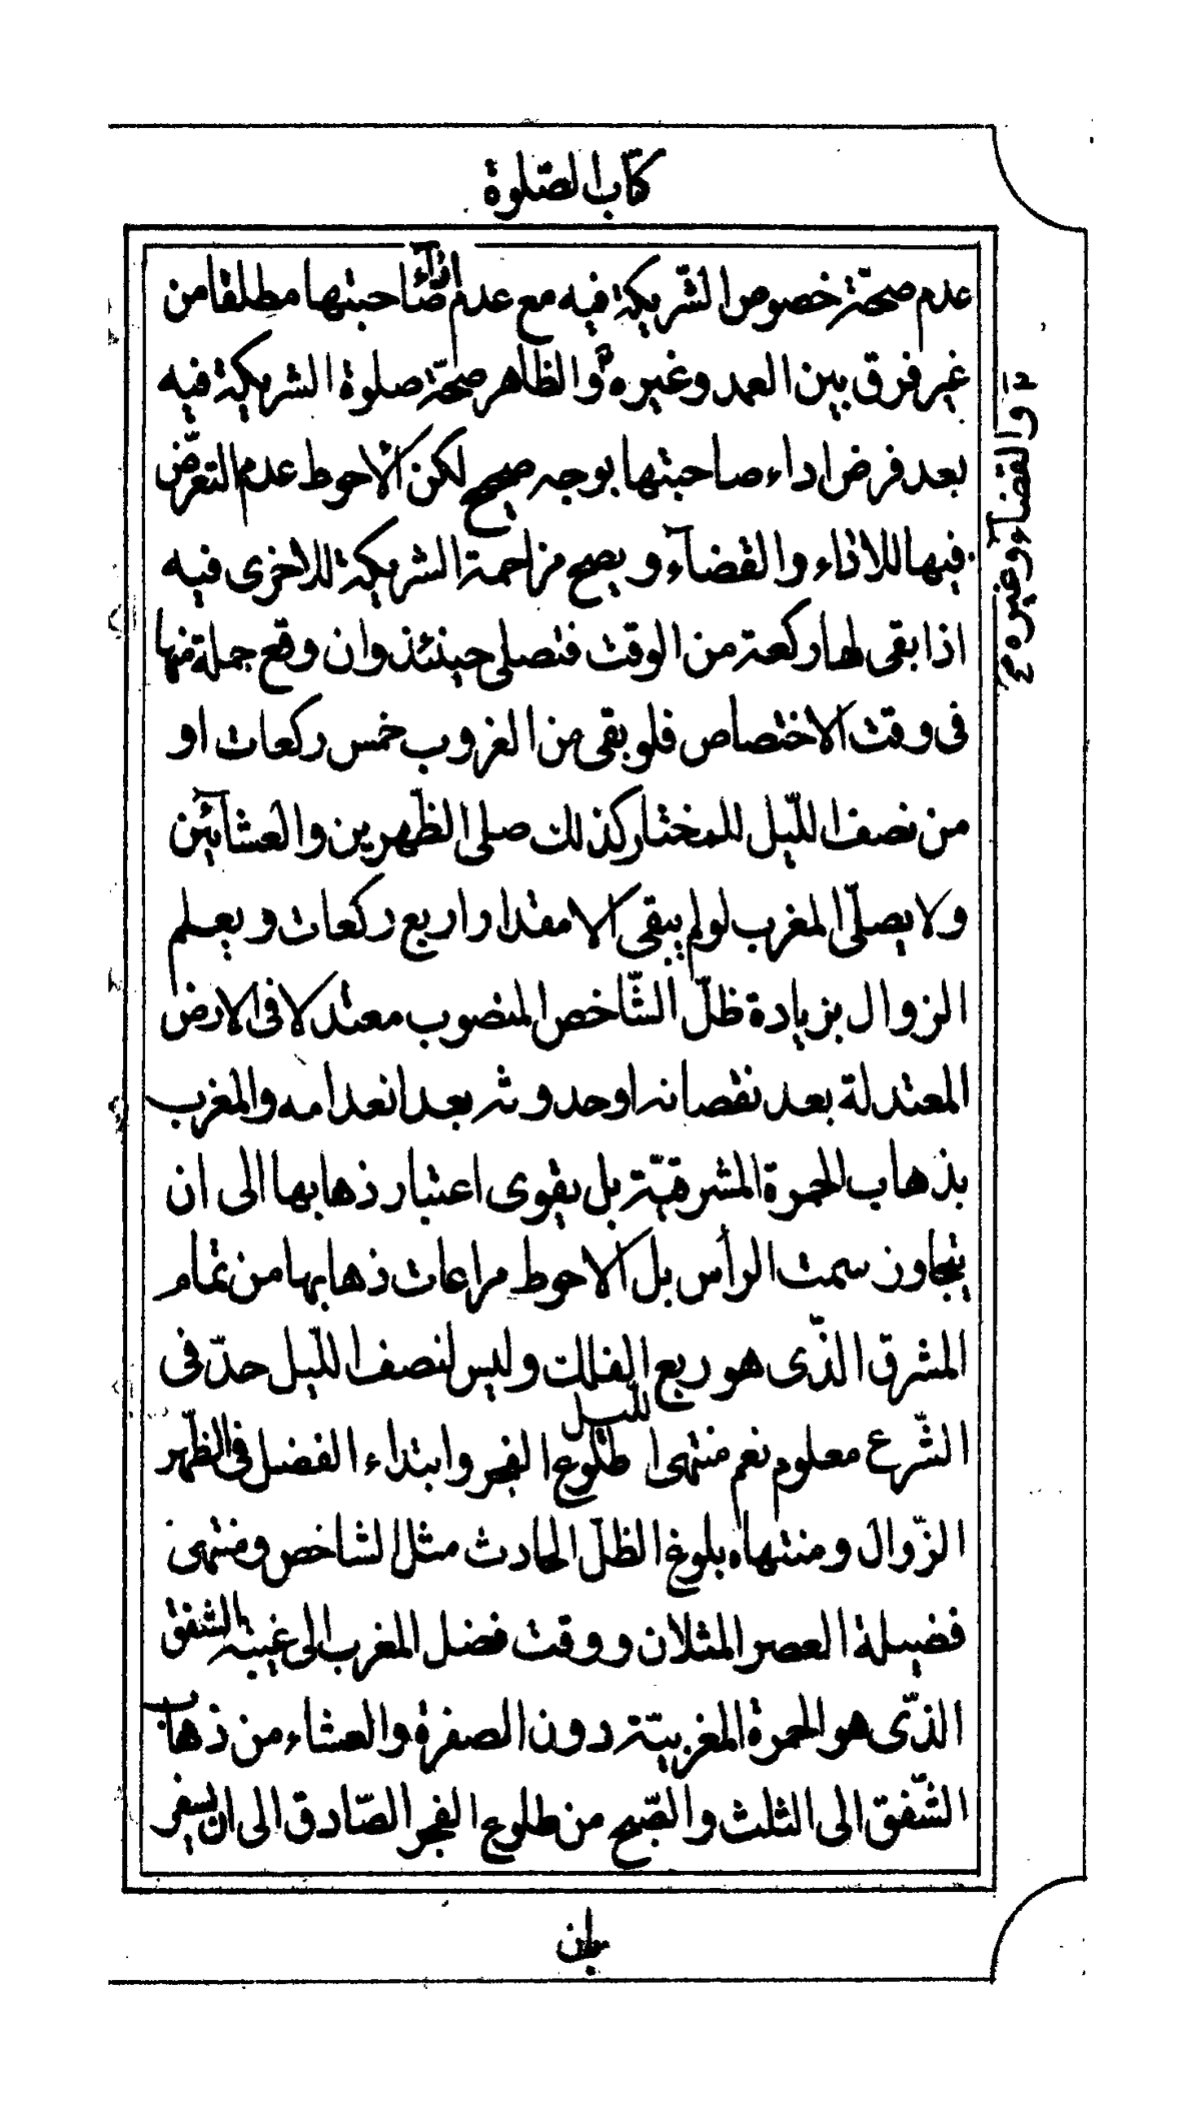 كتاب الصّلوة
عدم صحّة خصوص الشّريكة فيه مع عدم اداء صاحبتها مطلقا من
غير فرق بين العمد وغيره والظاهر صحّة صلوة الشريكة فيه
بعد فرض اداء صاحبتها بوجه صحيح لكن الاحوط عدم التعرّض
فيها للاداء والقضآء ويصح مزاحمة الشريكة للاخرى فيه
اذا بقى لها ركعة من الوقت فتصلى حينئذ وان وقع جملة منها
فى وقت الاختصاص فلو بقى من الغروب خمس ركعات او
من نصف اللّيل للمختار كذلك صلى الظّهرين والعشآئين
ولا يصلّى المغرب لو لم يبقى الا مقدار اربع ركعات ويعلم
الزوال بزيادة ظلّ الشّاخص المنصوب معتدلا فى الارض
المعتدلة بعد نقصانه او حدوثه بعد انعدامه والمغرب
بذهاب الحمرة المشرقيّة بل يقوى اعتبار ذهابها الى ان
يتجاوز سمت الرأس بل الاحوط مراعات ذهابها من تمام
المشرق الذّى هو ربع الفلك وليس لنصف اللّيل حدّ فى
الشّرع معلوم نعم منتهى اللّيل طلوع الفجر وابتداء الفضل فى الظّهر
الزّوال ومنتهاه بلوغ الظلّ الحادث مثل الشاخص ومنتهى
فضيلة العصر المثلان ووقت فضل المغرب الى غيبة الشفق
الذّى هو الحمرة المغربيّة دون الصفرة والعشاء من ذهاب
الشّفق الى الثلث والصّبح من طلوع الفجر الصّادق الى ان يسفر
والقضآء وغيره